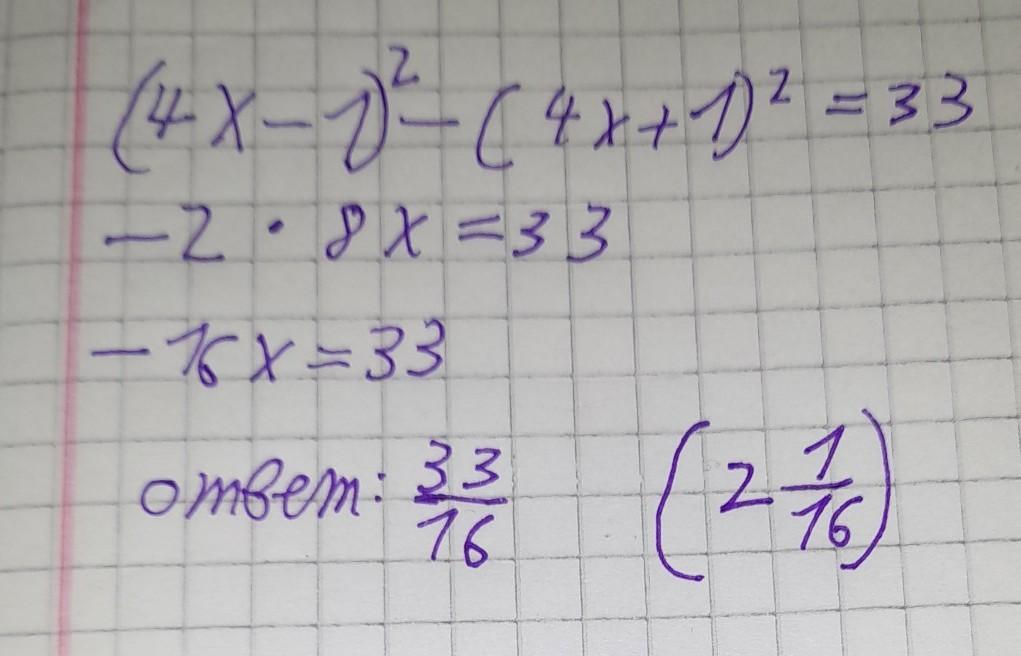 (4x-1)²-(4x+1)²=33
-2·8x=33
-16x=33
ответ: 33/16 (2 1/16)